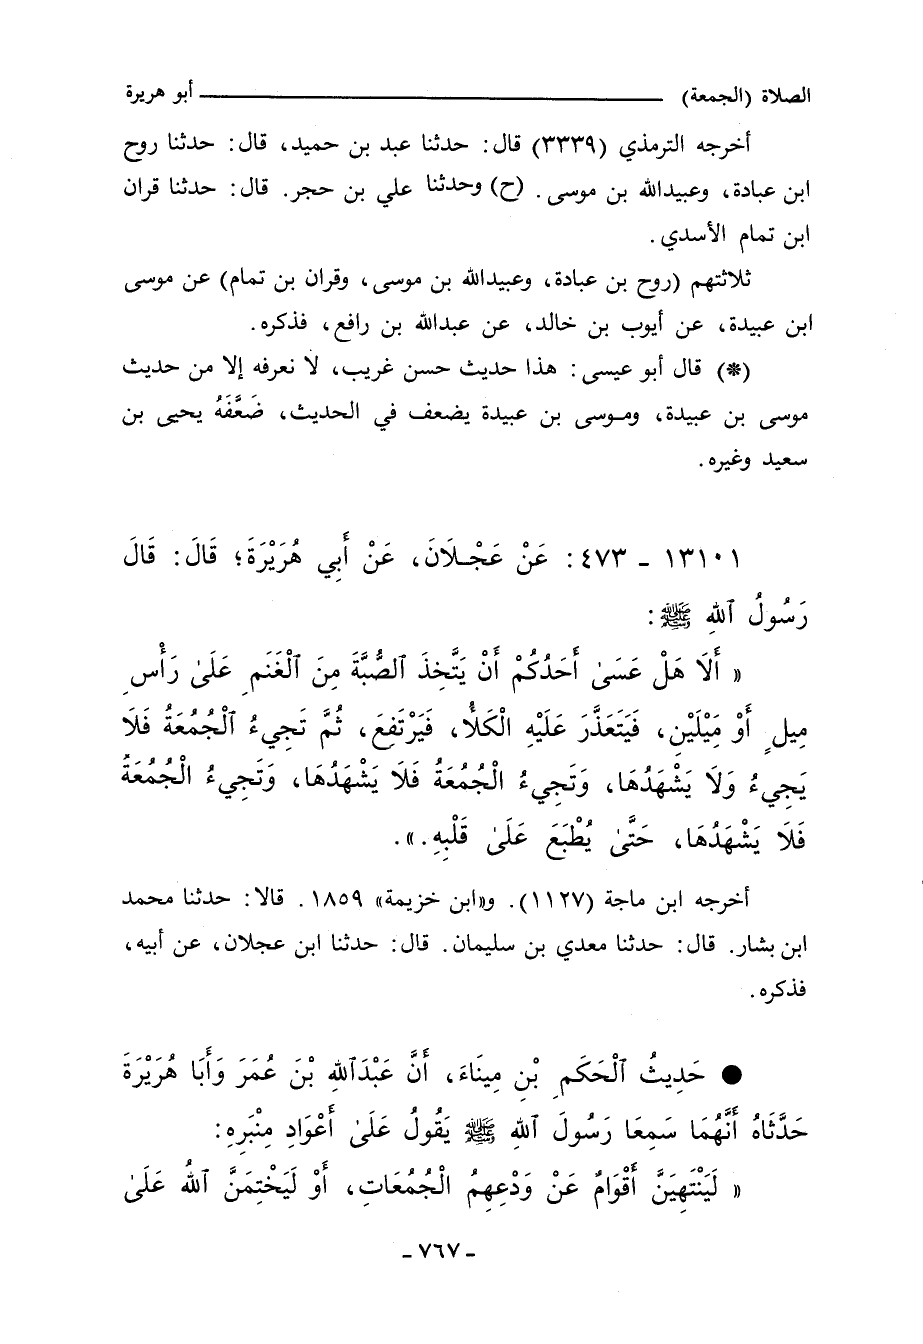 الصلاة (الجمعة) ــــــــــــــــــــــــ أبو هريرة
أخرجه الترمذي (٣٣٣٩) قال: حدثنا عبد بن حميد، قال: حدثنا روح
ابن عبادة، وعبيدالله بن موسى. (ح) وحدثنا علي بن حجر. قال: حدثنا قران
ابن تمام الأسدي.
ثلاثتهم (روح بن عبادة، وعبيدالله بن موسى، وقران بن تمام) عن موسى
ابن عبيدة، عن أيوب بن خالد، عن عبدالله بن رافع، فذكره.
(*) قال أبو عيسى: هذا حديث حسن غريب، لا نعرفه إلا من حديث
موسى بن عبيدة، وموسى بن عبيدة يضعف في الحديث، ضَعَّفَهُ يحيى بن
سعيد وغيره.
١٣١٠١ - ٤٧٣: عَنْ عَجْلَانَ، عَنْ أَبِي هُرَيْرَةَ؛ قَالَ: قَالَ
رَسُولُ ٱللهِ ﷺ:
« أَلَا هَلْ عَسَىٰ أَحَدُكُمْ أَنْ يَتَّخِذَ ٱلصُّبَّةَ مِنَ ٱلْغَنَمِ عَلَىٰ رَأْسِ
مِيلٍ أَوْ مِيْلَيْنِ، فَيَتَعَذَّرَ عَلَيْهِ الْكَلَأُ، فَيَرْتَفِعَ، ثُمَّ تَجِيءُ ٱلْجُمُعَةُ فَلَا
يَجِيءُ وَلَا يَشْهَدُهَا، وَتَجِيءُ الْجُمُعَةُ فَلَا يَشْهَدُهَا، وَتَجِيءُ الْجُمُعَةُ
فَلَا يَشْهَدُهَا، حَتَّىٰ يُطْبَعَ عَلَىٰ قَلْبِهِ.».
أخرجه ابن ماجة (١١٢٧). و«ابن خزيمة» ١٨٥٩. قالا: حدثنا محمد
ابن بشار. قال: حدثنا معدي بن سليمان. قال: حدثنا ابن عجلان، عن أبيه،
فذكره.
● حَدِيثُ ٱلْحَكَمِ بْنِ مِينَاءَ، أَنَّ عَبْدَٱللهِ بْنَ عُمَرَ وَأَبَا هُرَيْرَةَ
حَدَّثَاهُ أَنَّهُمَا سَمِعَا رَسُولَ ٱللهِ ﷺ يَقُولُ عَلَىٰ أَعْوَادِ مِنْبَرِهِ:
« لَيَنْتَهِيَنَّ أَقْوَامٌ عَنْ وَدْعِهِمُ الْجُمُعَاتِ، أَوْ لَيَخْتِمَنَّ ٱللهُ عَلَىٰ
- ٧٦٧ -